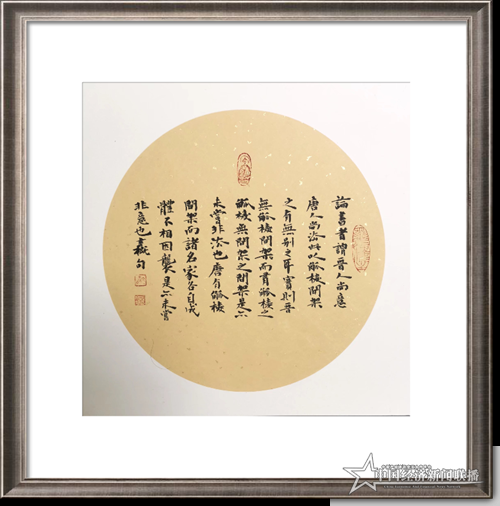 論書者謂晉人尚意
唐人尚法此以觚棱間架
之有無別之耳實則晉
無觚棱間架而觚棱之
觚棱無間架之間架是亦
未嘗非法也唐有觚棱
間架而諸名家各自成
體不相因襲是亦未嘗
非意也
中国经济新闻联播